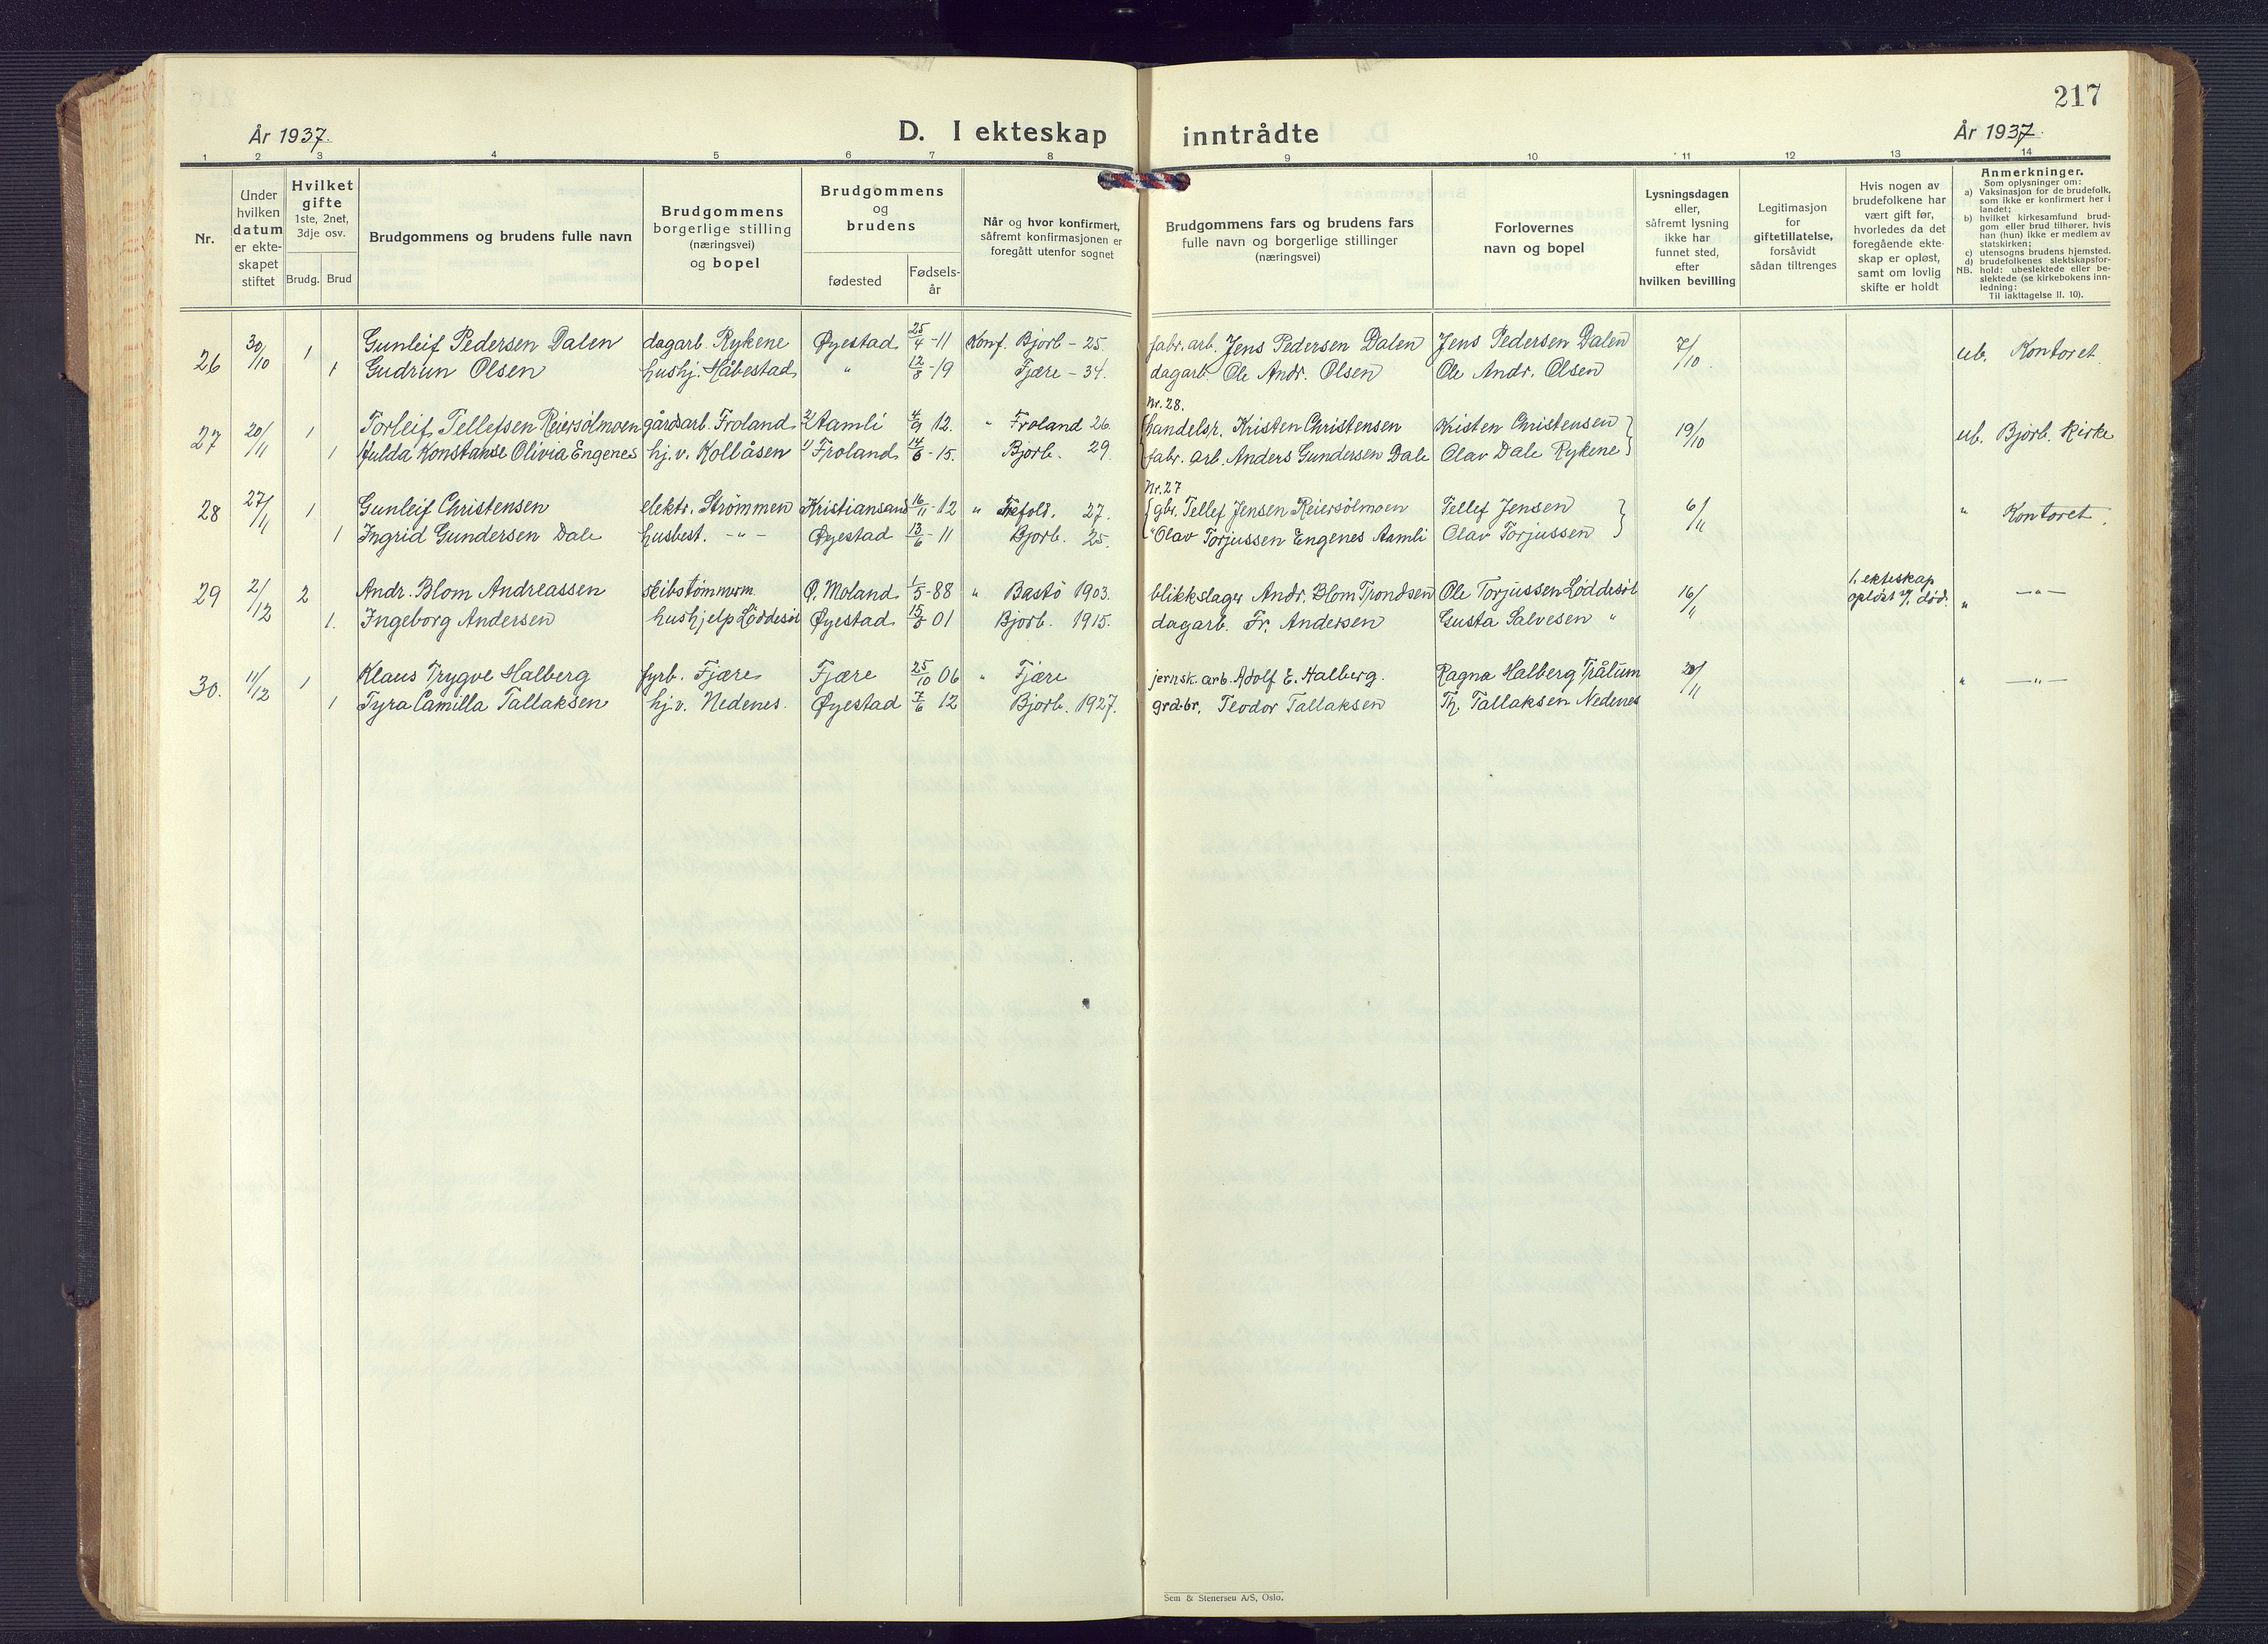 217
År 1937.
D. I ekteskap inntrådte
År 1937.
1 2 3 4 5 6 7 8 9 10 11 12 13 14
Nr.
Under hvilken datum er ekte- skapet stiftet
Hvilket gifte
1ste, 2net, 3dje osv.
Brudg. Brud
Brudgommens og brudens fulle navn
Brudgommens borgerlige stilling (næringsvei) og bopel
Brudgommens og brudens
fødested
Fødsels- år
Når og hvor konfirmert, såfremt konfirmasjonen er foregått utenfor sognet
Brudgommens fars og brudens fars fulle navn og borgerlige stillinger (næringsvei)
Forlovernes navn og bopel
Lysningsdagen eller, såfremt lysning ikke har funnet sted, efter hvilken bevilling
Legitimasjon for giftetillatelse, forsåvidt sådan tiltrenges
Hvis nogen av brudefolkene har vært gift før, hvorledes da det foregående ekte- skap er opløst, samt om lovlig skifte er holdt
Anmerkninger.
Som oplysninger om:
a) Vaksinasjon for de brudefolk, som ikke er konfirmert her i landet;
b) hvilket kirkesamfund brud- gom eller brud tilhører, hvis han (hun) ikke er medlem av statskirken;
c) utensogns brudens hjemsted.
d) brudefolkenes slektskapsfor- hold: ubeslektede eller be- slektede (se kirkebokens inn- ledning:
NB. Til iakttagelse II. 10).
26 30/10 1 Gunleif Pedersen Dalen dagarb. Rykene Øyestad 25/4 -11 Konf. Bjorb - 25. fabr. arb. Jens Pedersen Dalen Jens Pedersen Dalen 7/10 ub. Kontoret.
1 Gudrun Olsen hushj. Håbestad " 12/8 -19 Fjære - 34. dagarb. Ole Andr. Olsen Ole Andr. Olsen
Nr. 28.
27 20/11 1 Torleif Tellefsen Reiersølmoen gårdsarb. Froland 2) Aamli 4/9 12. " Froland 26. handelsr. Kristen Christensen Kristen Christensen 19/10 ub. Bjorb. Kirke
1 Hulda Konstanse Olivia Engenes hj. v. Kollåsen 1) Froland 14/6 -15. Bjorb. 29. fabr. arb. Anders Gundersen Dale Olav Dale Rykene
Nr. 27
28 27/11 1 Gunleif Christensen elektr. Strømmen Kristiansand 16/11 -12 " 27. gbr. Tellef Jensen Reiersølmoen Tellef Jensen 6/11 " Kontoret.
1 Ingrid Gundersen Dale husbest. -"- Øyestad 13/6 -11 Bjorb. 25. " Olav Torjussen Engenes Aamli Olav Torjussen
29 2/12 2 Andr. Blom Andreassen skibstømmerm. Ø. Moland 1/5 -88 " Bastö 1903. blikkslager Andr. Blom Trondsen Ole Torjussen Løddesöl 16/11 1. ekteskap opløst død. " -"-
1. Ingeborg Andersen hushjelp Löddesöl Øyestad 15/5 01 Bjorb. 1915. dagarb. Fr. Andersen Gusta Salvesen "
30. 11/12 1 Klaus Trygve Halberg fyrb. Fjære Fjære 25/10 06 " Fjære jernsk. arb. Adolf E. Halberg. Ragna Halberg Tråtum " -"-
1 Tyra Camilla Tallaksen hj. v. Nedenes. Øyestad 7/6 12 Bjorb. 1927. grd.br. Teodor Tallaksen Th. Tallaksen Nedenes
Sem & Stenersen A/S, Oslo.